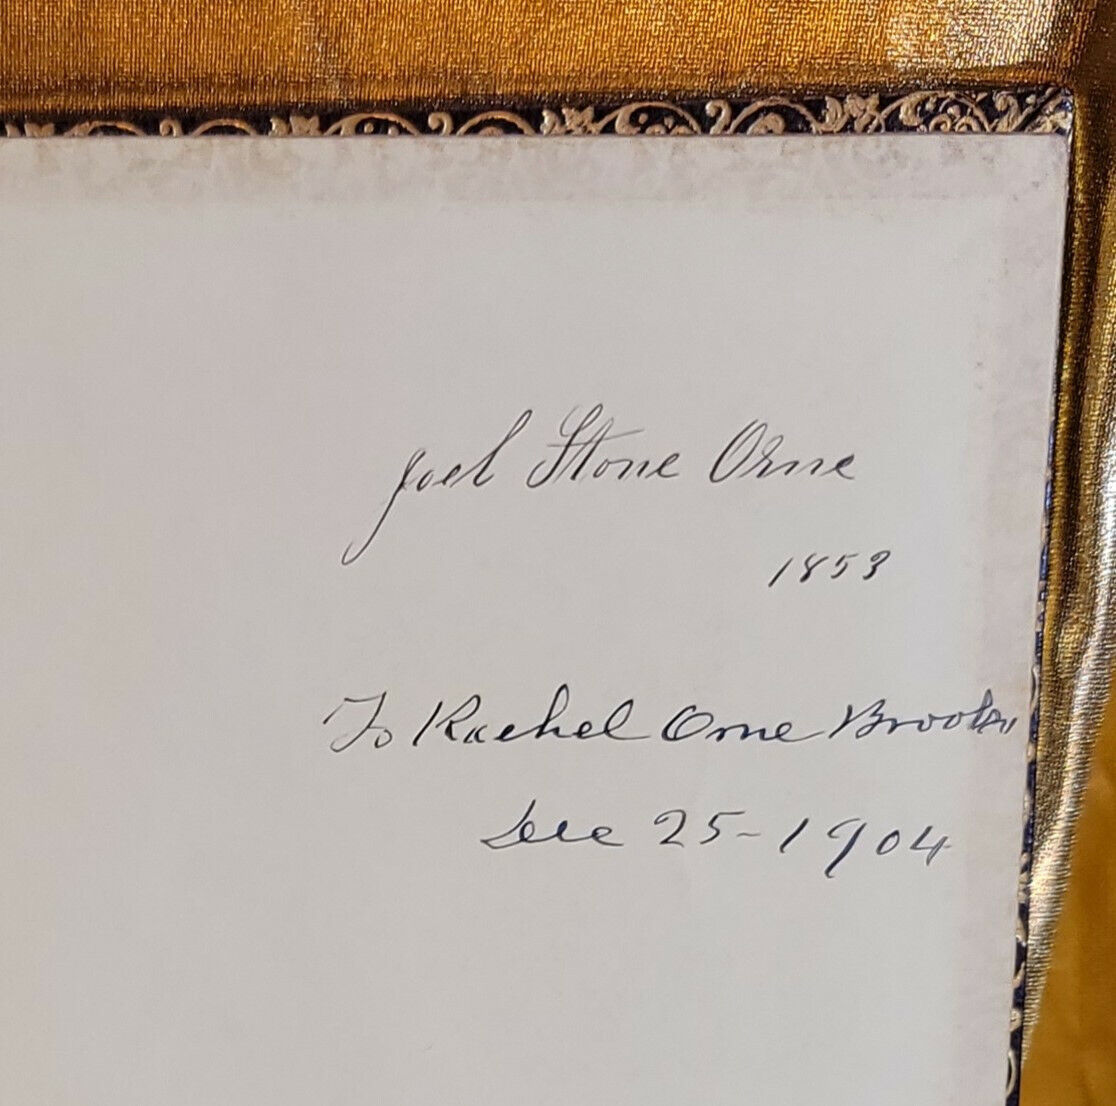 Joel Stone Orne
1853
To Rachel Orne Brooks
Dec 25-1904